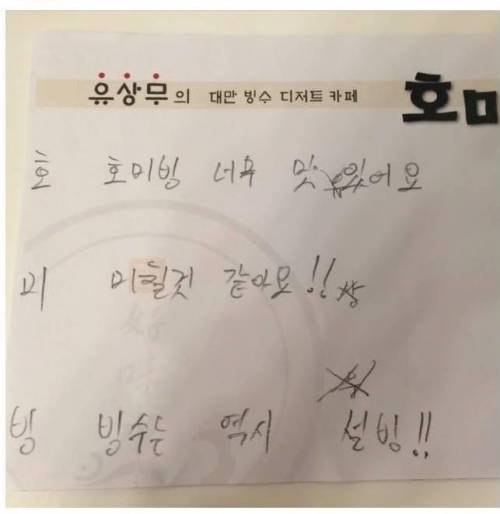 유상무의 대만 빙수 디저트 카페 호미
호 호미빙 너무 맛있어요
미 미힐것 같아요!!
빙 빙수는 역시 설빙!!